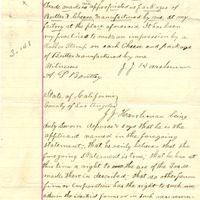 trade mark is appropriated is packages of
Butter & Cheese manufactured by me, at my
factory at the place aforesaid. It has been
my practice to make an impression by a
Rubber Stamp on each Cheese and package
of Butter manufactured by me
Witness J J Harshman
A P Bentley
State of California
County of Los Angeles
J J Harshman being
duly Sworn deposes & says that he is the
applicant named in the foregoing
Statement, that he verily believes that the
foregoing Statement is true, that he has at
this time a right to the use of the Trade
mark therein described; that no other person
firm or Corporation has the right to such use